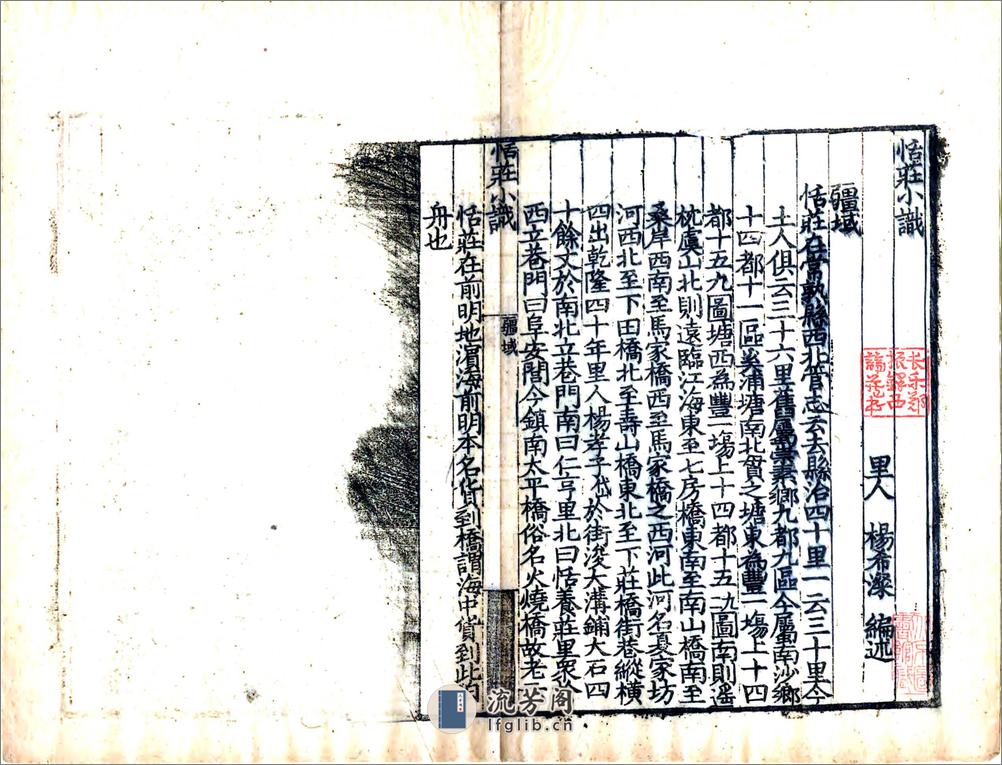 恬莊小識
里人 楊希濚 編述
疆域
恬莊在常熟縣西北管志云去縣治四十里一云三十里今
土人俱云三十六里舊屬崇素鄉九都九區今屬南沙鄉
十四都十一區奚浦塘南北貫之塘東為豐一場上十四
都十五九圖塘西為豐一場上十四都十五九圖南則遙
枕虞山北則遠臨江海東至七房橋東南至南山橋南至
桑岸西南至馬家橋西至馬家橋之西河此河名憂家坊
河西北至下田橋北至壽山橋東北至下莊橋街巷縱橫
四出乾隆四十年里人楊孝子岱於街浚大溝鋪大石四
十餘丈於南北立巷門南曰仁亨里北曰恬養莊里眾於
西立巷門曰阜安閣今鎮南太平橋俗名火燒橋故老云
恬莊小識
疆域
恬莊在前明地濵海前明本名貨到橋謂海中貨到此
舟也
流芳阁
lfglib.cn